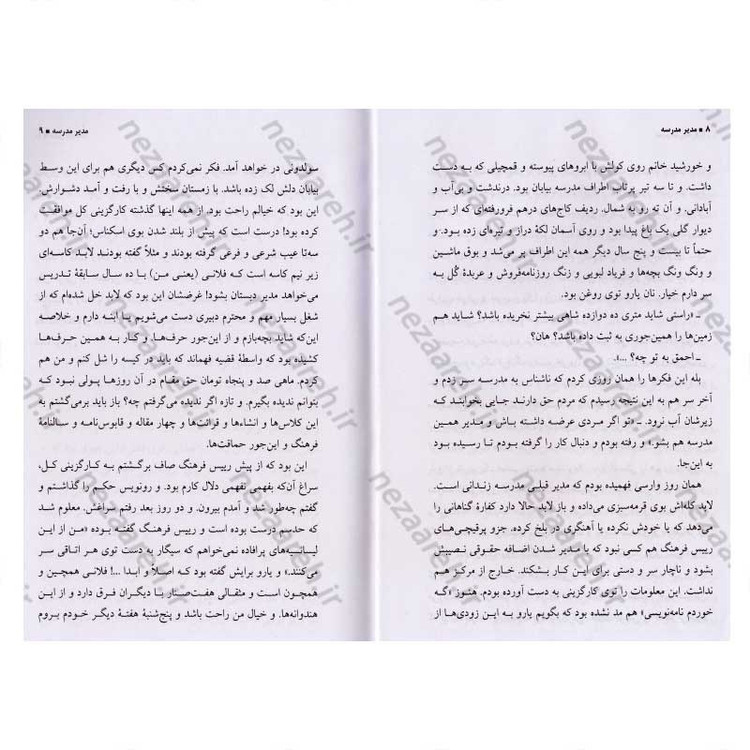 ۸ ■ مدیر مدرسه
و خورشید خانم روی کولش با ابروهای پیوسته و قمچیلی که به دست
داشت. و تا سه تیر پرتاب اطراف مدرسه بیابان بود. درندشت و بی‌آب و
آبادانی. و آن ته رو به شمال. ردیف کاج‌های درهم فرورفته‌ای که از سر
دیوار گلی یک باغ پیدا بود و روی آسمان لکهٔ دراز و تیره‌ای زده بود. و
حتماً تا بیست و پنج سال دیگر همهٔ این اطراف پر می‌شد و بوق ماشین
و ونگ ونگ بچه‌ها و فریاد لبویی و زنگ روزنامه‌فروش و عربدهٔ گُل به
سر دارم خیار. نان یارو توی روغن بود.
ـ «راستی شاید متری ده دوازده شاهی بیشتر نخریده باشد؟ شاید هم
زمین‌ها را همین‌جوری به ثبت داده باشد؟ هان؟
ـ احمق به تو چه؟ ...».
بله این فکرها را همان روزی کردم که ناشناس به مدرسه سر زدم و
آخر سر هم به این نتیجه رسیدم که مردم حق دارند جایی بخوابند که
زیرشان آب نرود. ـ «تو اگر مردی عرضه داشته باش و مدیر همین
مدرسه هم بشو.» و رفته بودم و دنبال کار را گرفته بودم تا رسیده بود
به این‌جا.
همان روز وارسی فهمیده بودم که مدیر قبلی مدرسه زندانی است.
لابد کله‌اش بوی قرمه‌سبزی می‌داده و باز لابد حالا دارد کفارهٔ گناهانی را
می‌دهد که یا خودش نکرده یا آهنگری در بلخ کرده. جزو پرقیچی‌های
رییس فرهنگ هم کسی نبود که با مدیر شدن اضافه حقوقی نصیبش
بشود و ناچار سر و دستی برای این کار بشکند. خارج از مرکز هم
نداشت. این معلومات را توی کارگزینی به دست آورده بودم. هنوز «گه
خوردم نامه‌نویسی» هم مد نشده بود که بگویم یارو به این زودی‌ها از
مدیر مدرسه ■ ۹
سولدونی در خواهد آمد. فکر نمی‌کردم کس دیگری هم برای این وسط
بیابان دلش لک زده باشد. با زمستان سختش و با رفت و آمد دشوارش.
این بود که خیالم راحت بود. از همه اینها گذشته کارگزینی کل موافقت
کرده بود! درست است که پیش از بلند شدن بوی اسکناس؛ آن‌جا هم دو
سه‌تا عیب شرعی و فرعی گرفته بودند و مثلاً گفته بودند لابد کاسه‌ای
زیر نیم کاسه است که فلانی (یعنی من) با ده سال سابقهٔ تدریس
می‌خواهد مدیر دبستان بشود! غرضشان این بود که لابد خل شده‌ام که از
شغل بسیار مهم و محترم دبیری دست می‌شویم یا ابنه دارم و خلاصه
این‌که شاید بچه‌بازم و از این‌جور حرف‌ها و کار به همین حرف‌ها
کشیده بود که واسطهٔ قضیه فهماند که باید در کیسه را شل کنم و من هم
کردم. ماهی صد و پنجاه تومان حق مقام در آن روزها پولی نبود که
بتوانم ندیده بگیرم. و تازه اگر ندیده می‌گرفتم چه؟ باز باید برمی‌گشتم به
این کلاس‌ها و انشاءها و قرائت‌ها و چهار مقاله و قابوس‌نامه و سالنامهٔ
فرهنگ و این‌جور حماقت‌ها.
این بود که از پیش رییس فرهنگ صاف برگشتم به کارگزینی کل،
سراغ آن‌که بفهمی نفهمی دلال کارم بود. و رونویس حکم را گذاشتم و
گفتم چه‌طور شد و آمدم بیرون. و دو روز بعد رفتم سراغش. معلوم شد
که حدسم درست بوده است و رییس فرهنگ گفته بوده «من از این
لیسانسه‌های پرافاده نمی‌خواهم که سیگار به دست توی هر اتاقی سر
می‌کنند.» و یارو برایش گفته بود که اصلاً و ابدا ...! فلانی همچنین و
همچون است و مثقالی هفت‌صنار با دیگران فرق دارد و از این
هندوانه‌ها. و خیال من راحت باشد و پنج‌شنبهٔ هفتهٔ دیگر خودم بروم
nezaareh.ir
nezaareh.ir
nezaareh.ir
nezaareh.ir
nezaareh.ir
nezaareh.ir